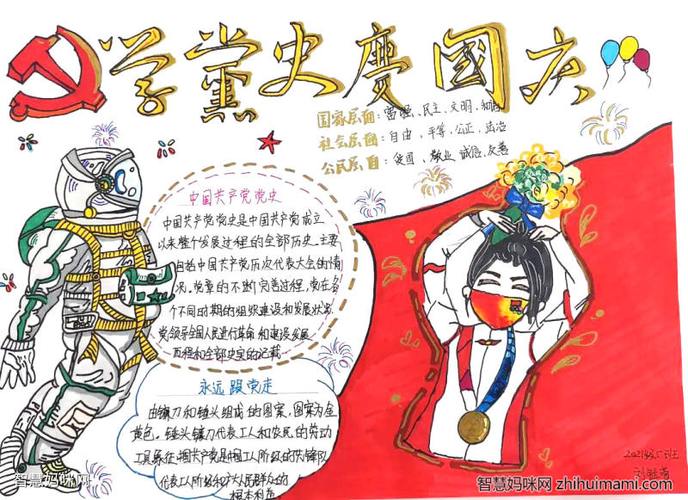 学黨史慶國庆
国家层面：富强、民主、文明、和谐
社会层面：自由、平等、公正、法治
公民层面：爱国、敬业、诚信、友善
中国共产党党史
中国共产党党史是中国共产党成立
以来整个发展过程的全部历史。主要
包括中国共产党历次代表大会的情
况。党章的不断完善过程，党在各
个不同时期的组织建设和发展状况
党领导全国人民进行革命和建设发展
历程和全部史实的记载
永远跟党走
由镰刀和锤头组成的图案，图案为金
黄色。锤头镰刀代表工人和农民的劳动
工具 中国共产党是中国工人阶级的先锋队
代表工人阶级和广大人民群众的
根本利益
2021级 班
智慧妈咪网
智慧妈咪网 zhihuimami.com